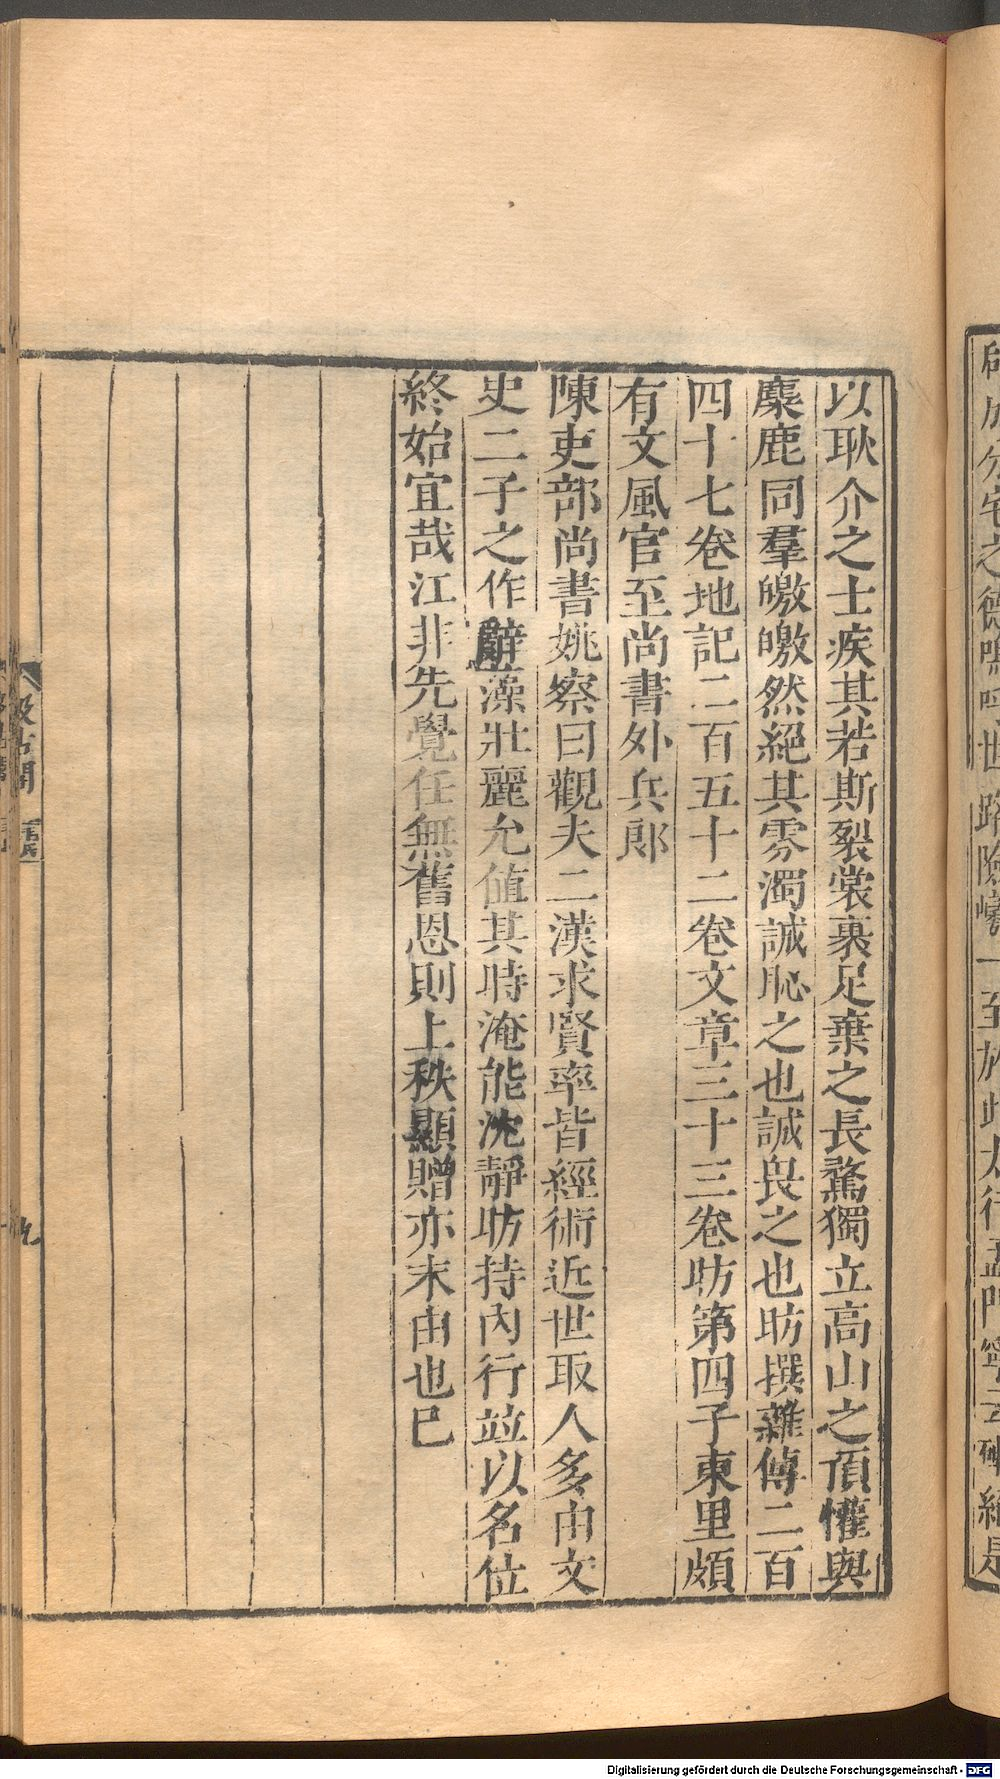 以耿介之士疾其若斯裂裳裹足棄之長騖獨立高山之頂懽與
麋鹿同羣皦皦然絕其雰濁誠恥之也誠畏之也昉撰雜傳二百
四十七卷地記二百五十二卷文章三十三卷昉第四子東里頗
有文風官至尚書外兵郎
陳吏部尚書姚察曰觀夫二漢求賢率皆經術近世取人多由文
史二子之作辭藻壯麗允値其時淹能沈靜昉持內行並以名位
終始宜哉江非先覺任無舊恩則上秩顯贈亦末由也已
汲古閣
九
Digitalisierung gefördert durch die Deutsche Forschungsgemeinschaft - DFG